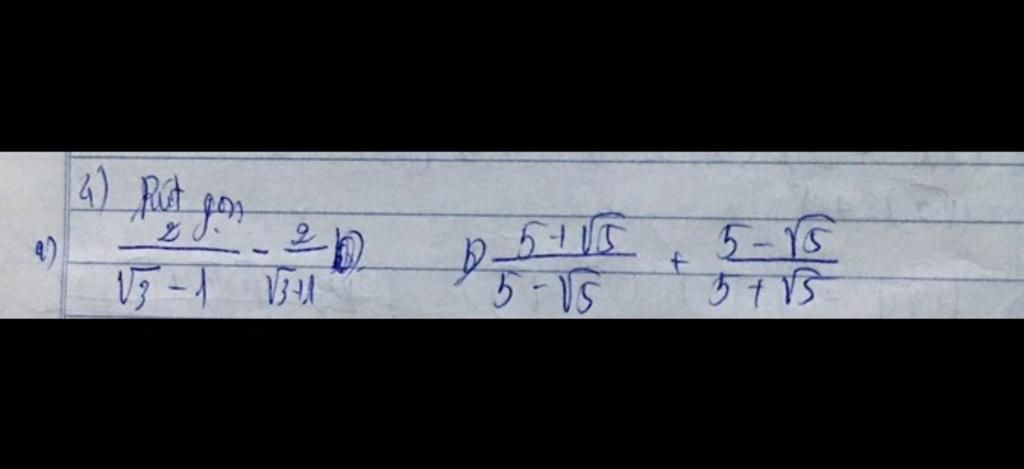 4) Rút gọn
a) \frac{2}{\sqrt{3}-1} - \frac{2}{\sqrt{3}+1} b) \frac{5+\sqrt{5}}{5-\sqrt{5}} + \frac{5-\sqrt{5}}{5+\sqrt{5}}